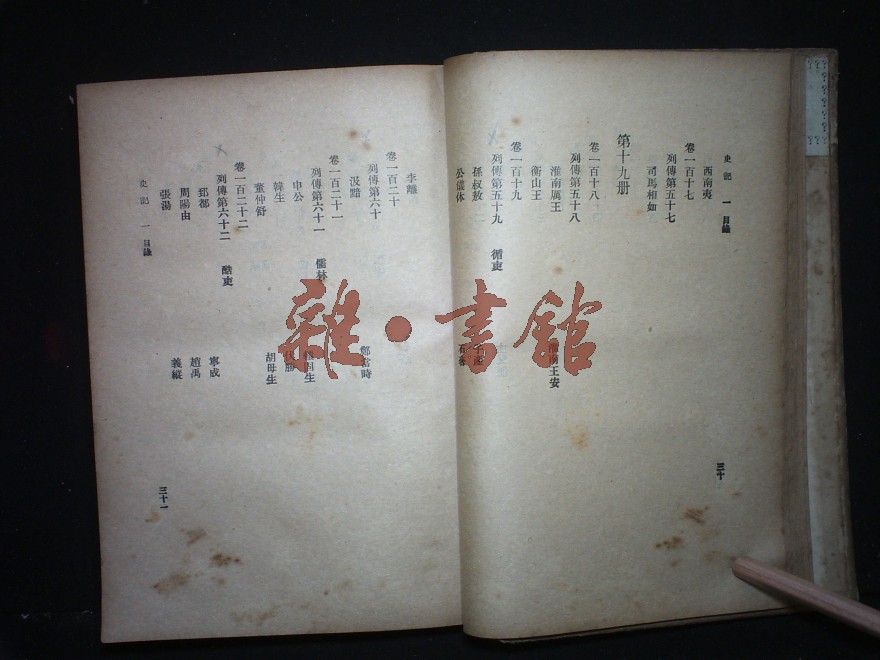 史記 一 目錄
西南夷
卷一百十七
列傳第五十七
司馬相如
第十九册
卷一百十八
列傳第五十八
淮南厲王
淮南王安
衡山王
卷一百十九
列傳第五十九 循吏
孫叔敖
公儀休
三十
李離
卷一百二十
列傳第六十
汲黯 鄭當時
卷一百二十一
列傳第六十一 儒林
申公 轅固生
韓生 伏勝
董仲舒 胡母生
卷一百二十二
列傳第六十二 酷吏
郅都 寧成
周陽由 趙禹
張湯 義縱
史記 一 目錄
三十一
雜·書館